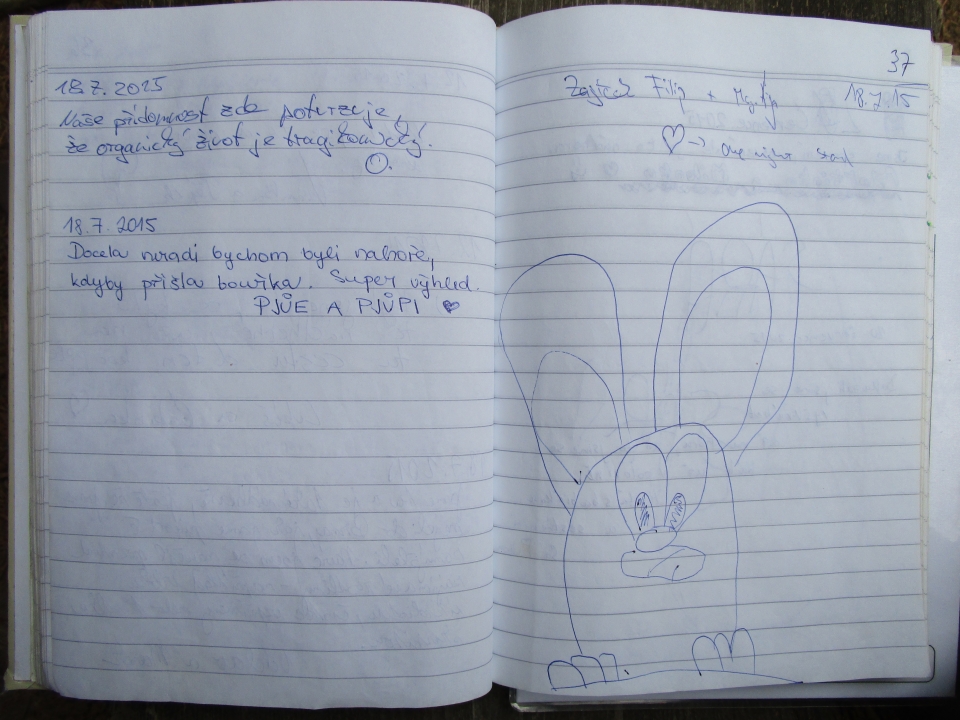 18.7.2015
Naše přítomnost zde potvrzuje,
že organický život je tragikomický!
18.7.2015
Docela neradi bychom byli nahoře,
kdyby přišla bouřka. Super výhled.
PJŮE A PJŮPI
37
Zajíček Filip + 18.7.15
→ One night stand